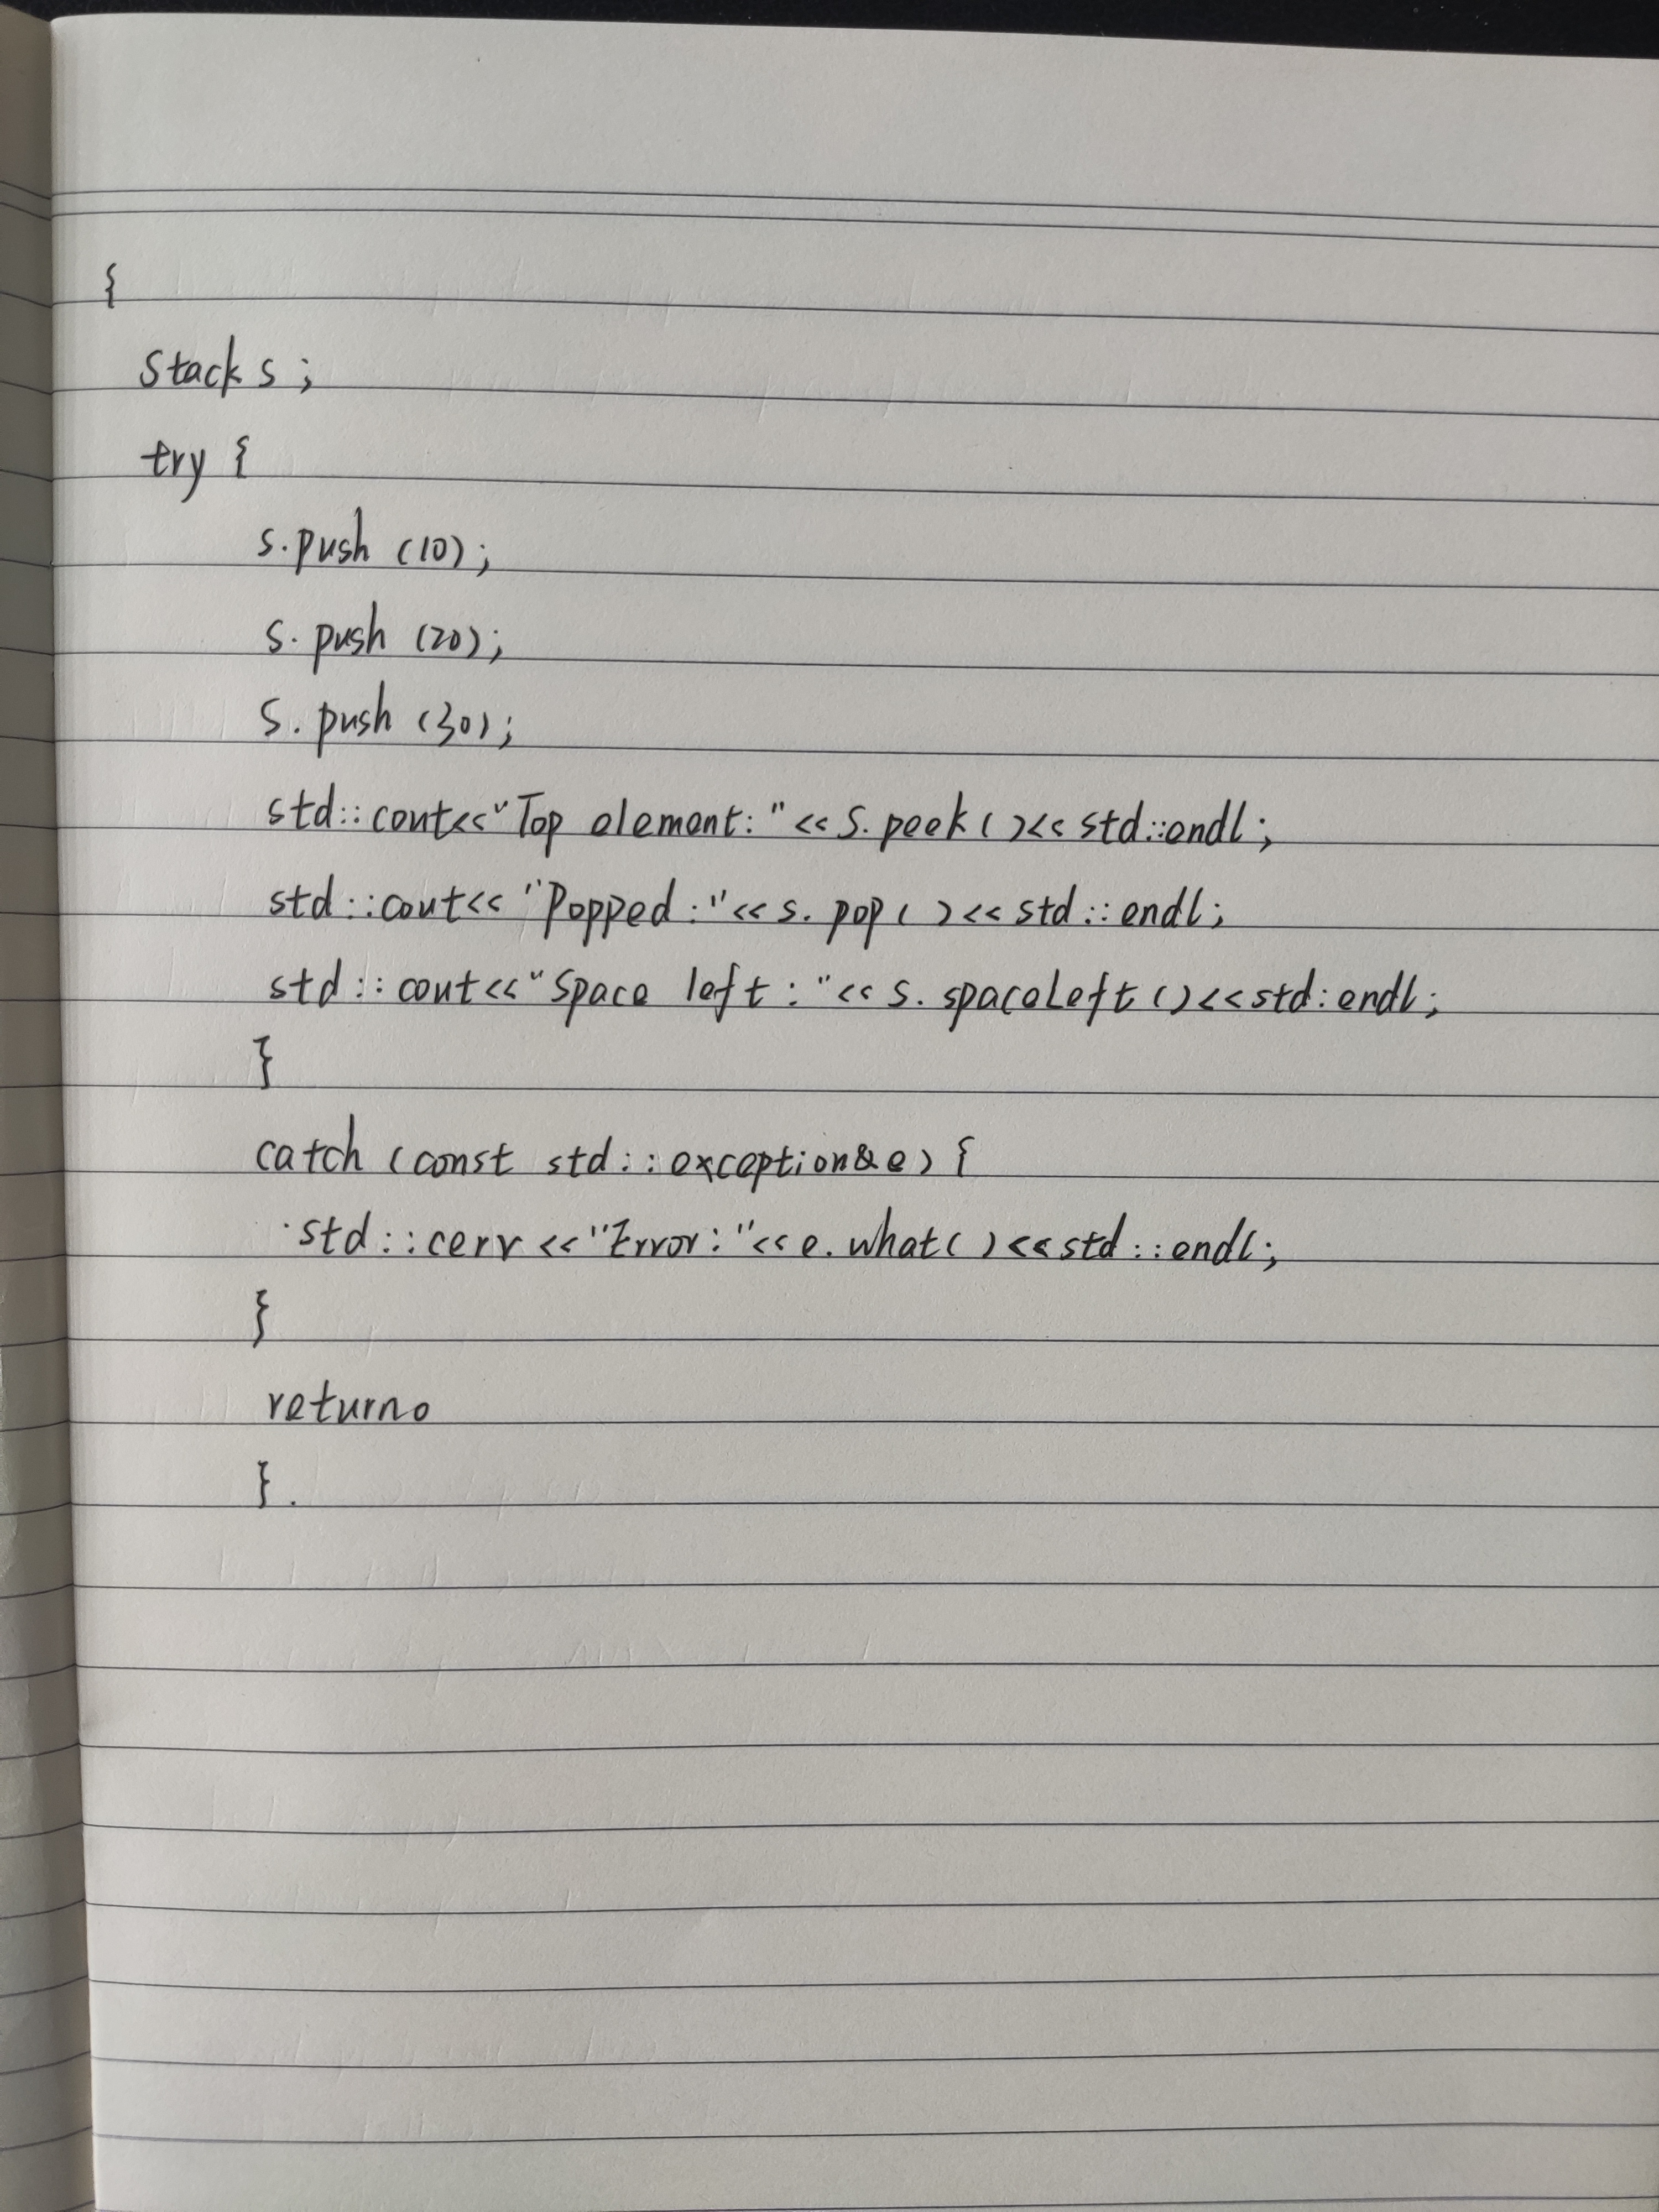 {
Stack s;
try {
s.push (10);
s. push (20);
s. push (30);
std::cout<<"Top element:"<<s.peek()<<std::endl;
std::cout<< "Popped:"<<s. pop()<<std::endl;
std::cout<<"Space left:"<<s. spaceLeft()<<std:endl;
}
catch (const std::exception&e) {
std::cerr <<"Error:"<<e. what()<<std::endl;
}
return0
}.